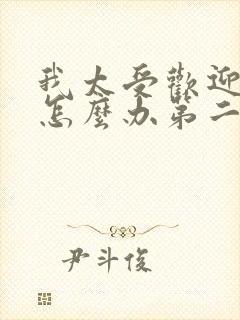 我太受歡迎
怎麼办第二
尹斗俊